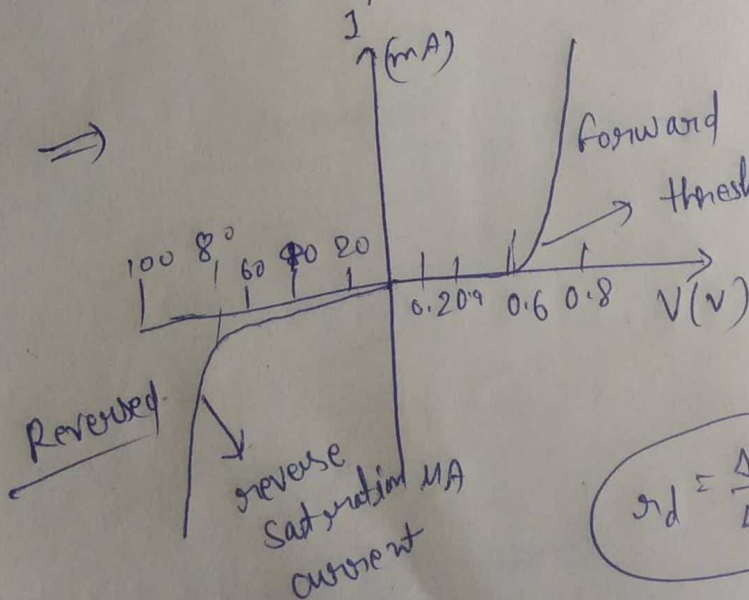 I
(mA)
⇒
forward
100 80 60 40 20
0.2 0.4 0.6 0.8 V(v)
Reversed
reverse
saturation μA
current
rd = Δ